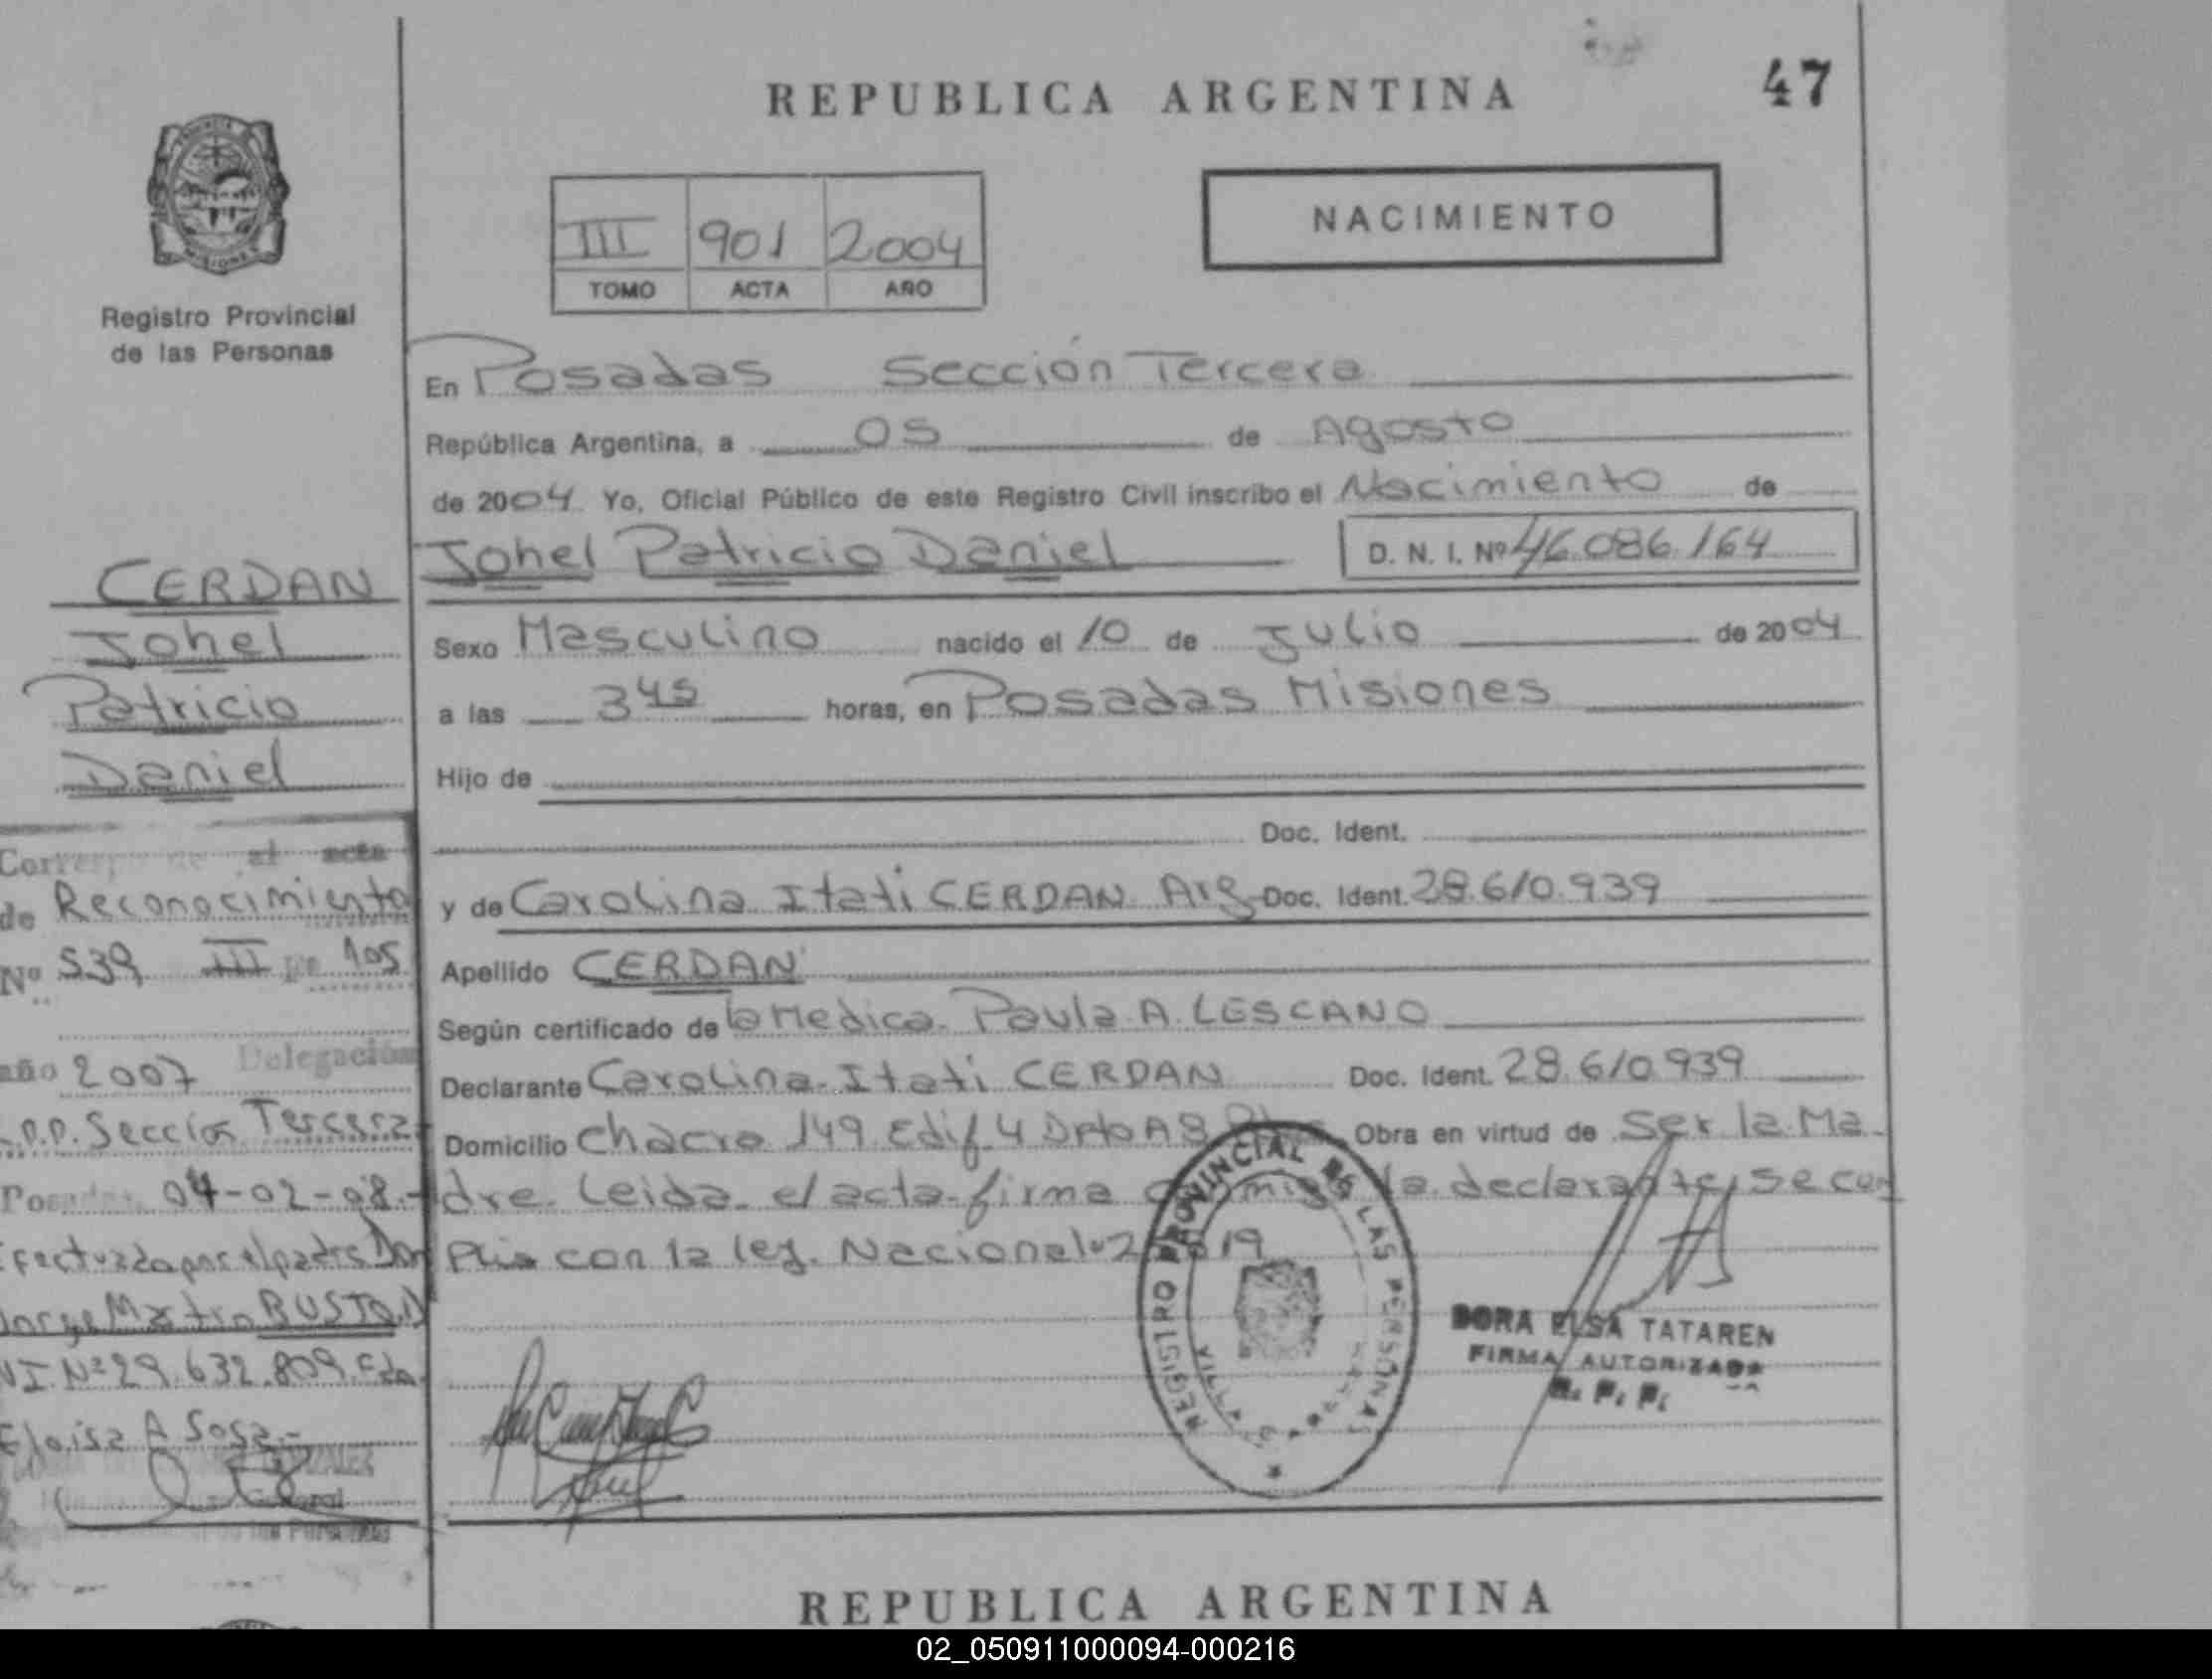 REPUBLICA ARGENTINA
47
NACIMIENTO
III 901 2004
TOMO ACTA AÑO
Registro Provincial
de las Personas
En Posadas Sección Tercera
República Argentina, a 05 de Agosto
de 2004 Yo, Oficial Público de este Registro Civil inscribo el Nacimiento de
Johel Patricio Daniel D. N. I. Nº 46.086.164
CERDAN
Johel
Patricio
Daniel
Sexo Masculino nacido el 10 de Julio de 2004
a las 3 45 horas, en Posadas Misiones
Hijo de
Doc. Ident.
y de Carolina Itati CERDAN Arg Doc. Ident. 28.610.939
Apellido CERDAN
Según certificado de la Medica Paula A. LESCANO
Declarante Carolina Itati CERDAN Doc. Ident. 28.610.939
Domicilio Chacra 149 Edif 4 Dpto A 8 Obra en virtud de Ser la Ma
dre. Leida el acta firma la declarante, se cum
plio con la ley. Nacional
al acta
de Reconocimiento
Nº 539 III 105
año 2007 Delegación
Sección Tercera
04-02-08
Efectuada por el padre Don
Jorge BUSTO D
NI. Nº 29.632.809. Fdo.
Eloisa A Sosa.-
REGISTRO PROVINCIAL DE LAS PERSONAS
DORA ELSA TATAREN
FIRMA AUTORIZADA
R. P. P.
REPUBLICA ARGENTINA
02_050911000094-000216